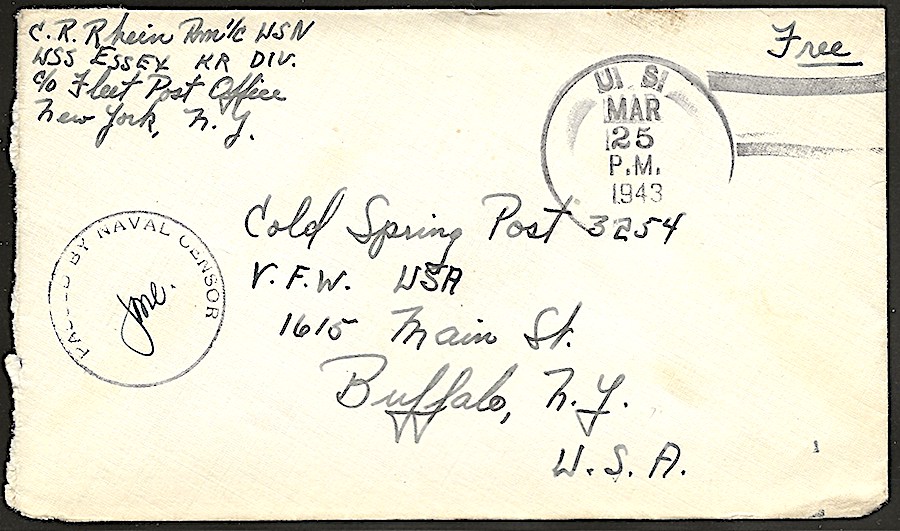 C. R. Rhein Rm1/c USN
USS ESSEX KR DIV.
c/o Fleet Post Office
New York, N. Y.
Free
U. S.
MAR
25
P.M.
1943
PASSED BY NAVAL CENSOR
Cold Spring Post 3254
V.F.W. USA
1615 Main St.
Buffalo, N.Y.
U.S.A.